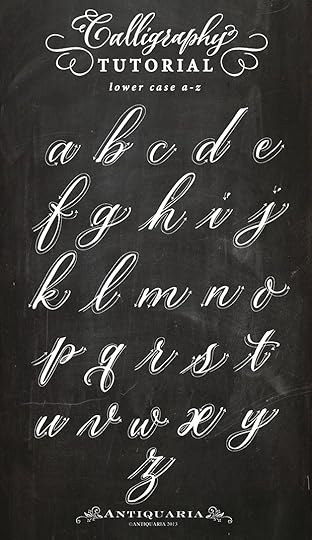 Calligraphy
TUTORIAL
lower case a-z
a b c d e
f g h i j
k l m n o
p q r s t
u v w x y
z
ANTIQUARIA
©ANTIQUARIA 2013